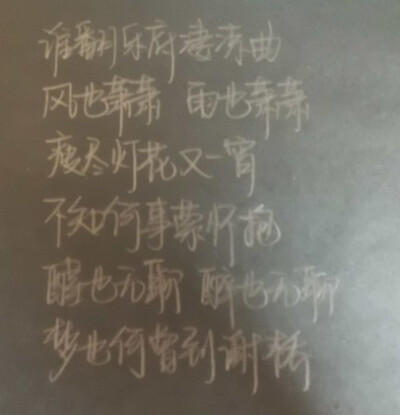 谁翻乐府凄凉曲
风也萧萧 雨也萧萧
瘦尽灯花又一宵
不知何事萦怀抱
醒也无聊 醉也无聊
梦也何曾到谢桥